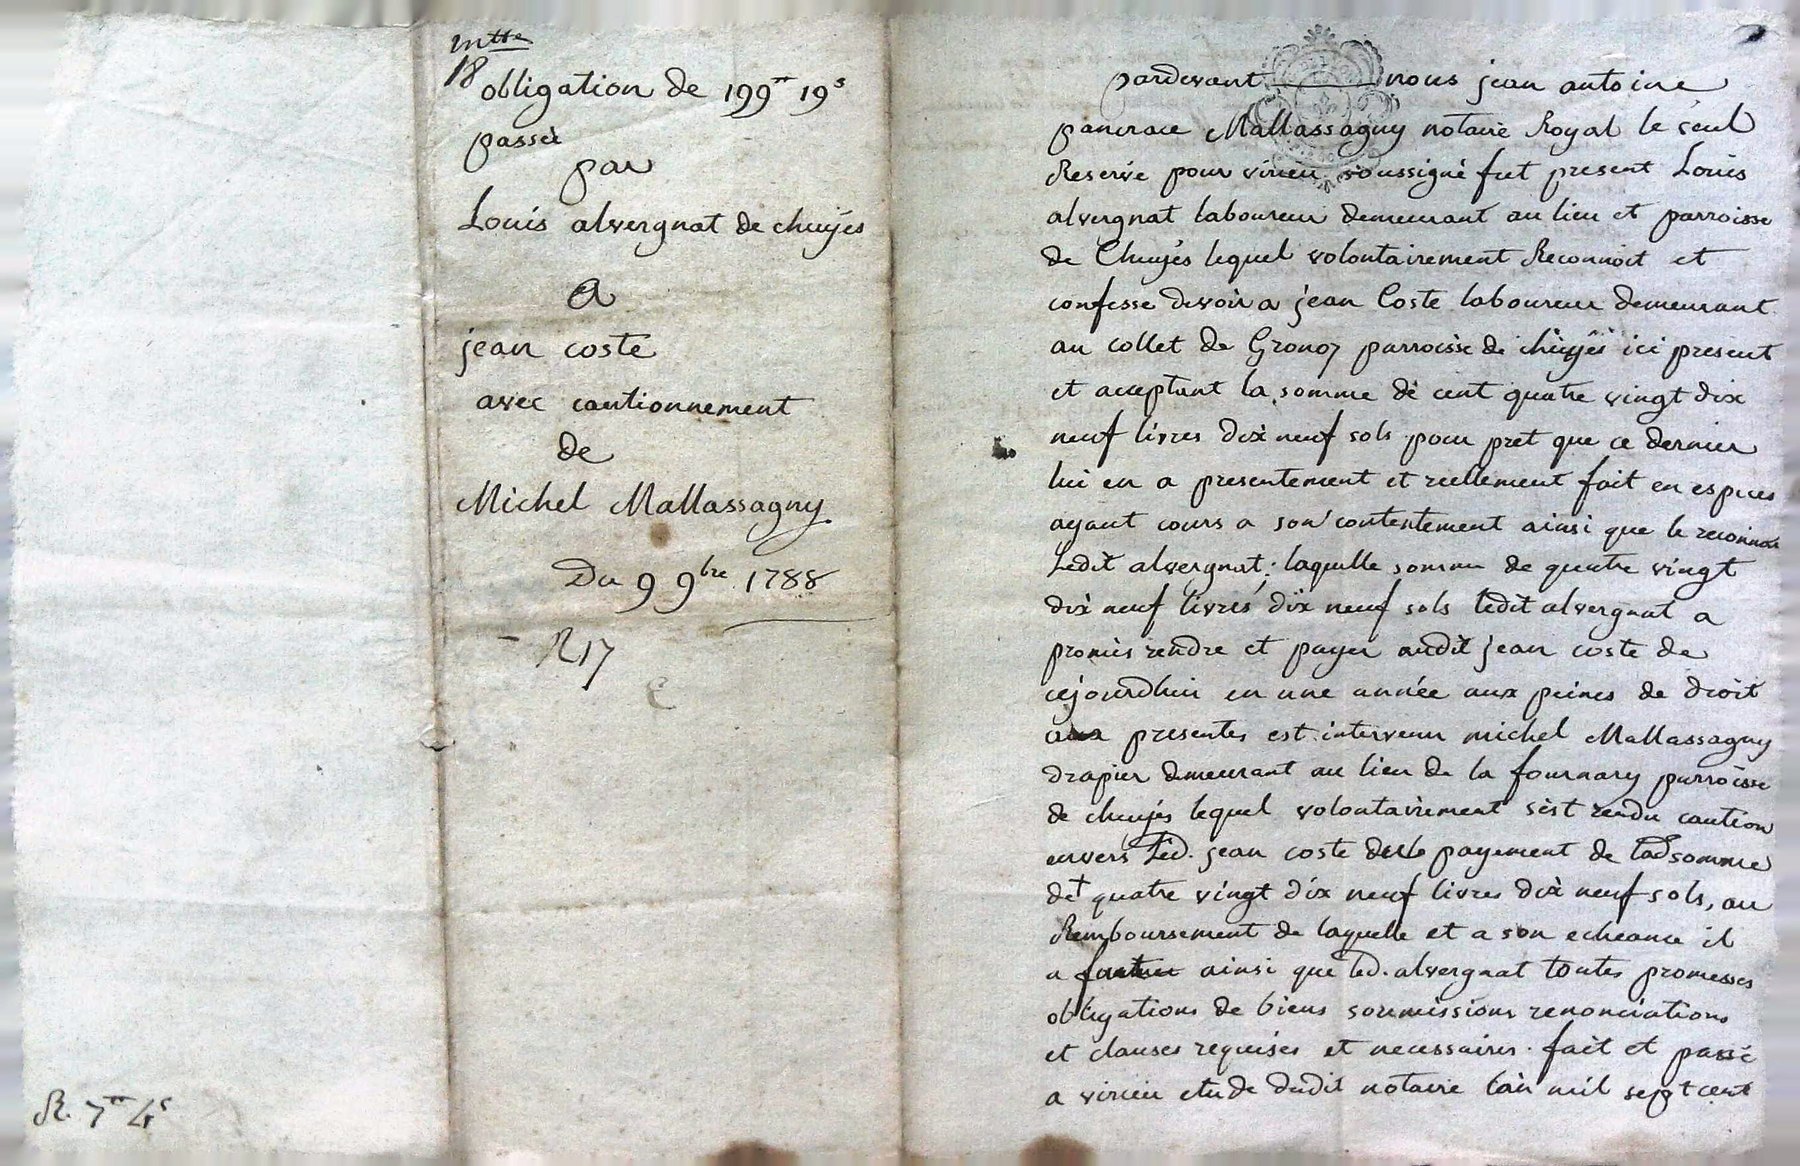 mtte
18
obligation de 199tt 19s
passée
par
Louis alvergnat de chuyés
A
jean coste
avec cautionnement
de
Michel Mallassagny
Du 9 9bre 1788
R 17
R. 7tt 4s
pardevant nous jean antoine
pancrace Mallassagny notaire Royal le seul
Reservé pour virieu soussigné fut present Louis
alvergnat laboureur demeurant au lieu et parroisse
de Chuyés lequel volontairement Reconnoit et
confesse devoir a jean Coste laboureur demeurant
au collet de Gronoz parroisse de chuyés ici present
et acceptant la somme de cent quatre vingt dix
neuf livres dix neuf sols pour pret que ce dernier
lui en a presentement et reellement fait en especes
ayant cours a son contentement ainsi que le reconnoit
Ledit alvergnat; laquelle somme de quatre vingt
dix neuf livres dix neuf sols ledit alvergnat a
promis rendre et payer audit jean coste de
cejourdhui en une année aux peines de droit
aux presentes est intervenu michel Mallassagny
drapier demeurant au lieu de la fournary parroisse
de chuyés lequel volontairement s'est rendu caution
envers Led. jean coste de le payement de lad somme
de + quatre vingt dix neuf livres dix neuf sols, au
Remboursement de laquelle et a son echeance il
a ainsi que led. alvergnat toutes promesses
obligations de biens soumissions renonciations
et clauses requises et necessaires. fait et passé
a virieu etude dudit notaire l'an mil sept cent